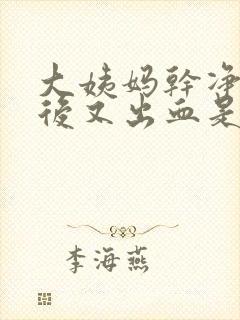 大姨妈幹净
後又出血是
李海燕